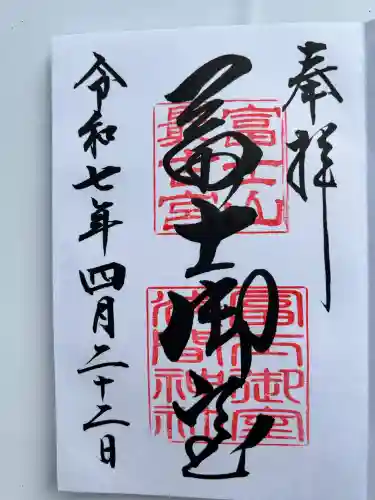 奉拝
富士御室
令和七年四月二十二日
富士山
最古宮
冨士御室
浅間神社